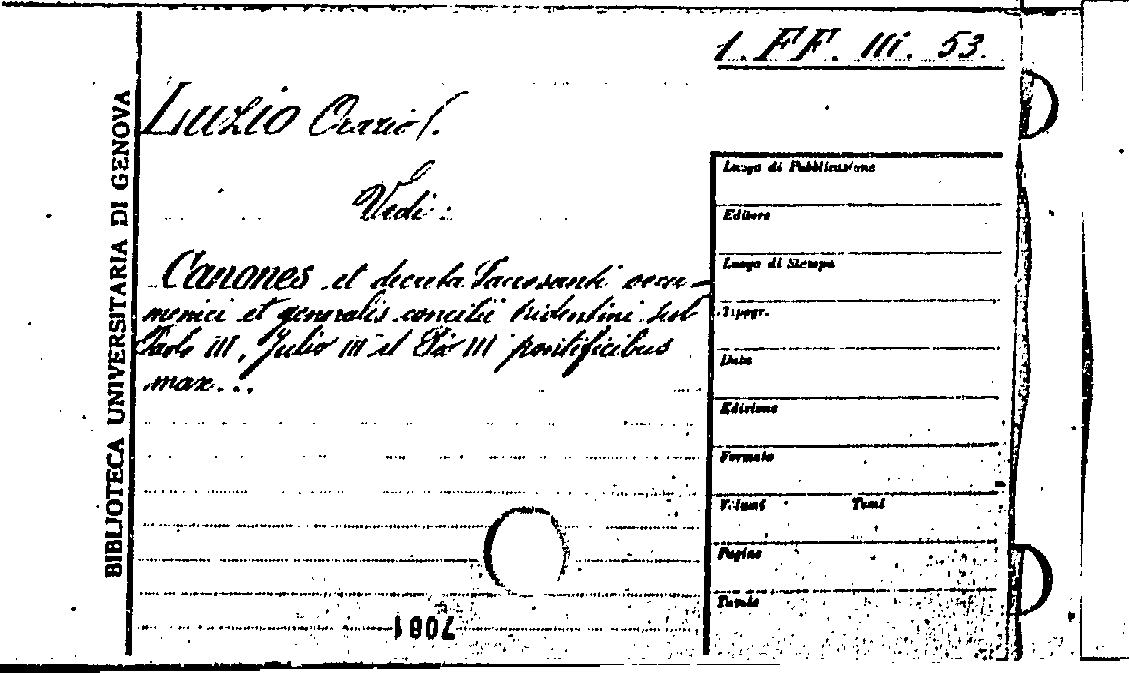 1. FF. III. 53.
LUZIO Orazio/.
Vedi:
Canones et decreta Sacrosanti oecu-
menici et generalis concilii tridentini sub
Paolo III, Julio III et Pio III pontificibus
max...
BIBLIOTECA UNIVERSITARIA DI GENOVA
Luogo di Pubblicazione
Editore
Luogo di Stampa
Tipogr.
Data
Edizione
Formato
Volumi Tomi
Pagine
Tavole
7081